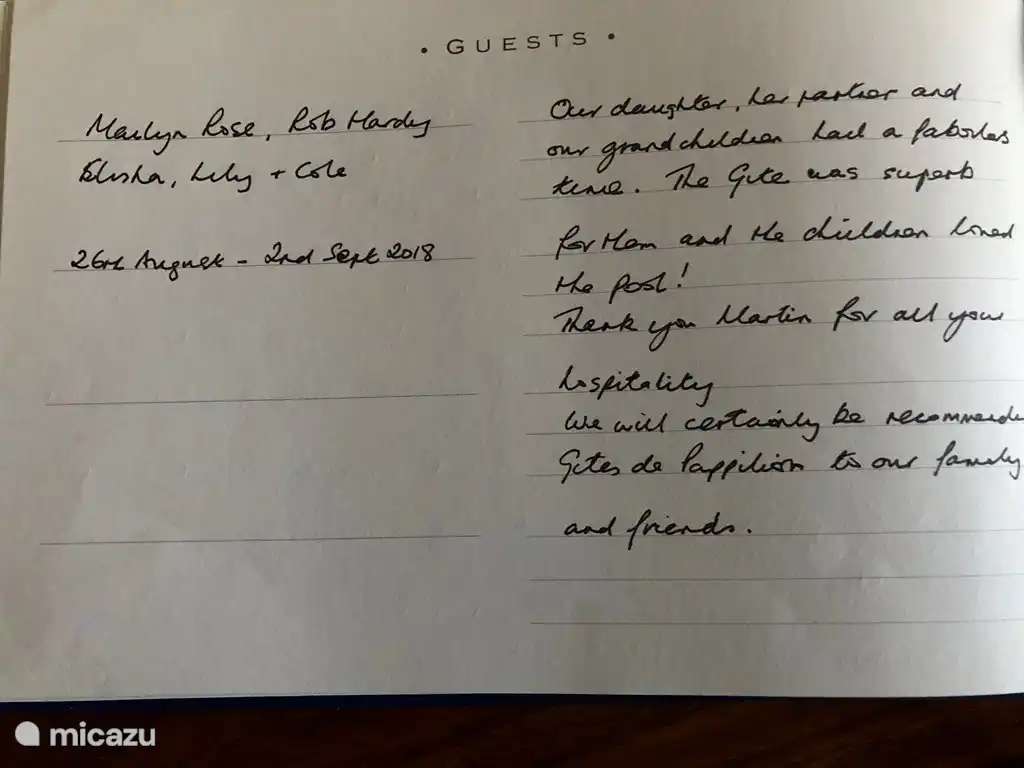 • GUESTS •
Marilyn Rose, Rob Hardy
Elisha, Lily + Cole
26th August - 2nd Sept 2018
Our daughter, her partner and
our grandchildren had a fabulos
time. The Gite was superb
for them and the children loved
the pool!
Thank you Martin for all your
hospitality
We will certainly be recommende
Gites de Pappilion to our family
and friends.
micazu